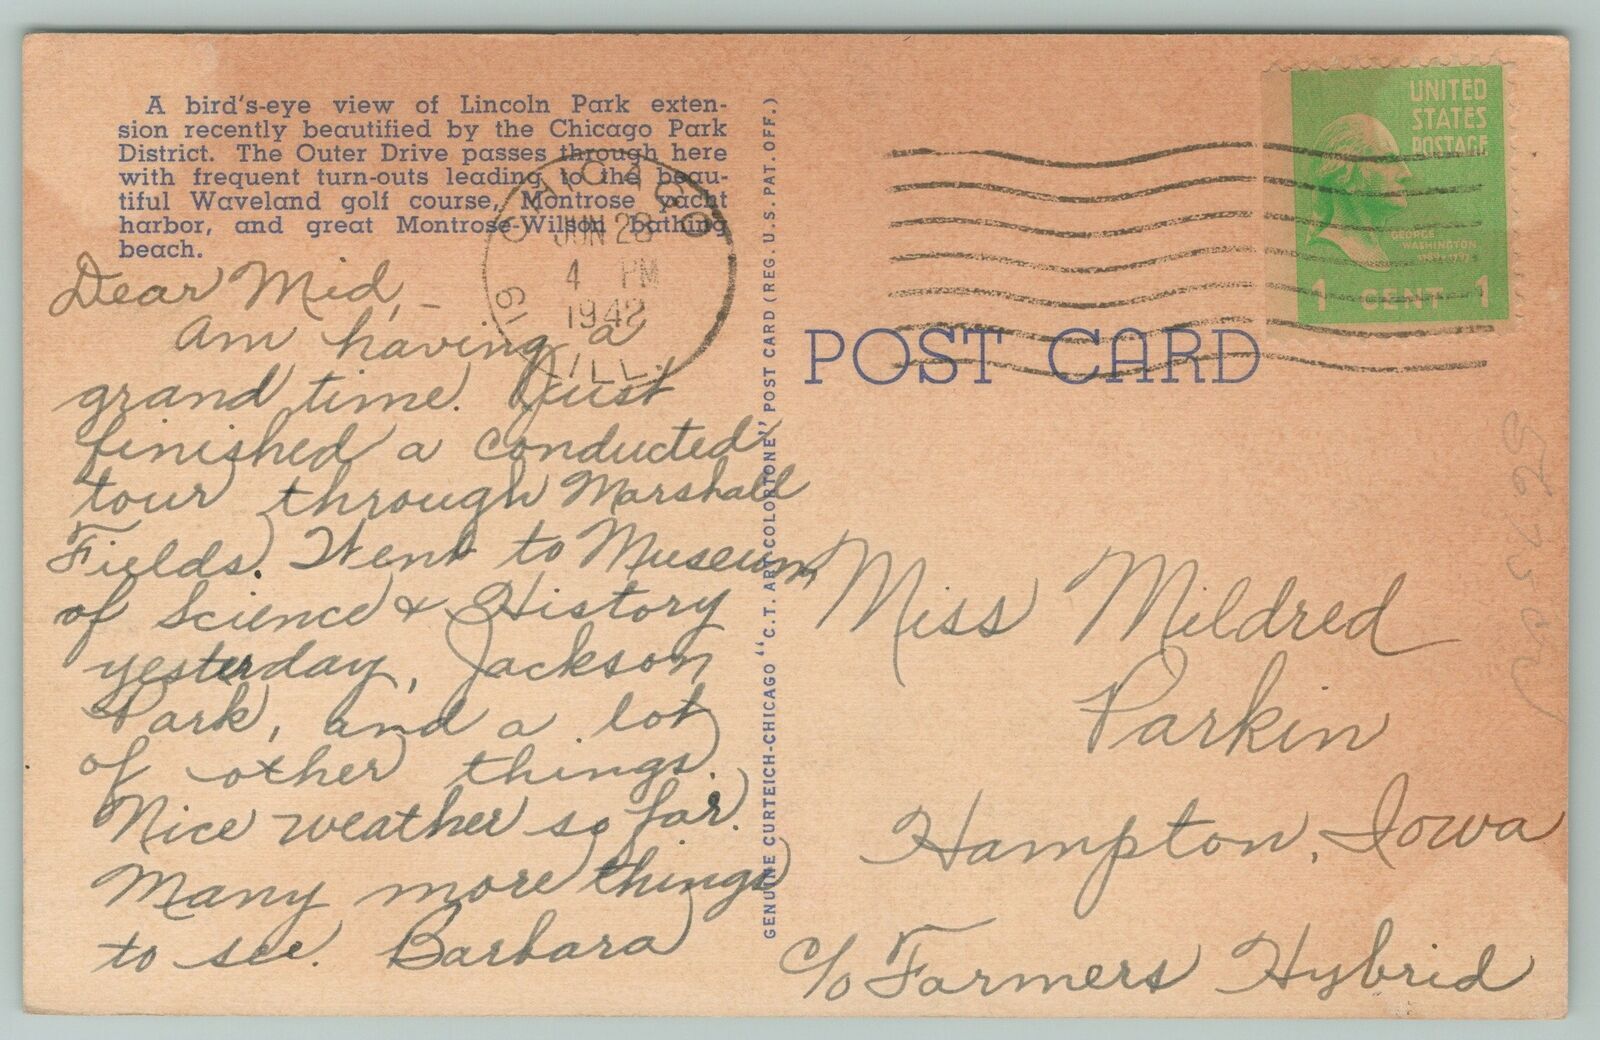 A bird's-eye view of Lincoln Park exten-
sion recently beautified by the Chicago Park
District. The Outer Drive passes through here
with frequent turn-outs leading to the beau-
tiful Waveland golf course, Montrose yacht
harbor, and great Montrose-Wilson bathing
beach.
CHICAGO
JUN 28
4 PM
1942
ILL.
19
Dear Mid, -
Am having a
grand time. Just
finished a conducted
tour through Marshall
Fields. Went to Museum
of Science & History
yesterday, Jackson
Park, and a lot
of other things.
Nice weather so far.
Many more things
to see. Barbara
GENUINE CURTEICH-CHICAGO "C.T. ART-COLORTONE" POST CARD (REG. U.S. PAT. OFF.)
UNITED
STATES
POSTAGE
GEORGE
WASHINGTON
1 CENT 1
POST CARD
Miss Mildred
Parkin
Hampton, Iowa
c/o Farmers Hybrid